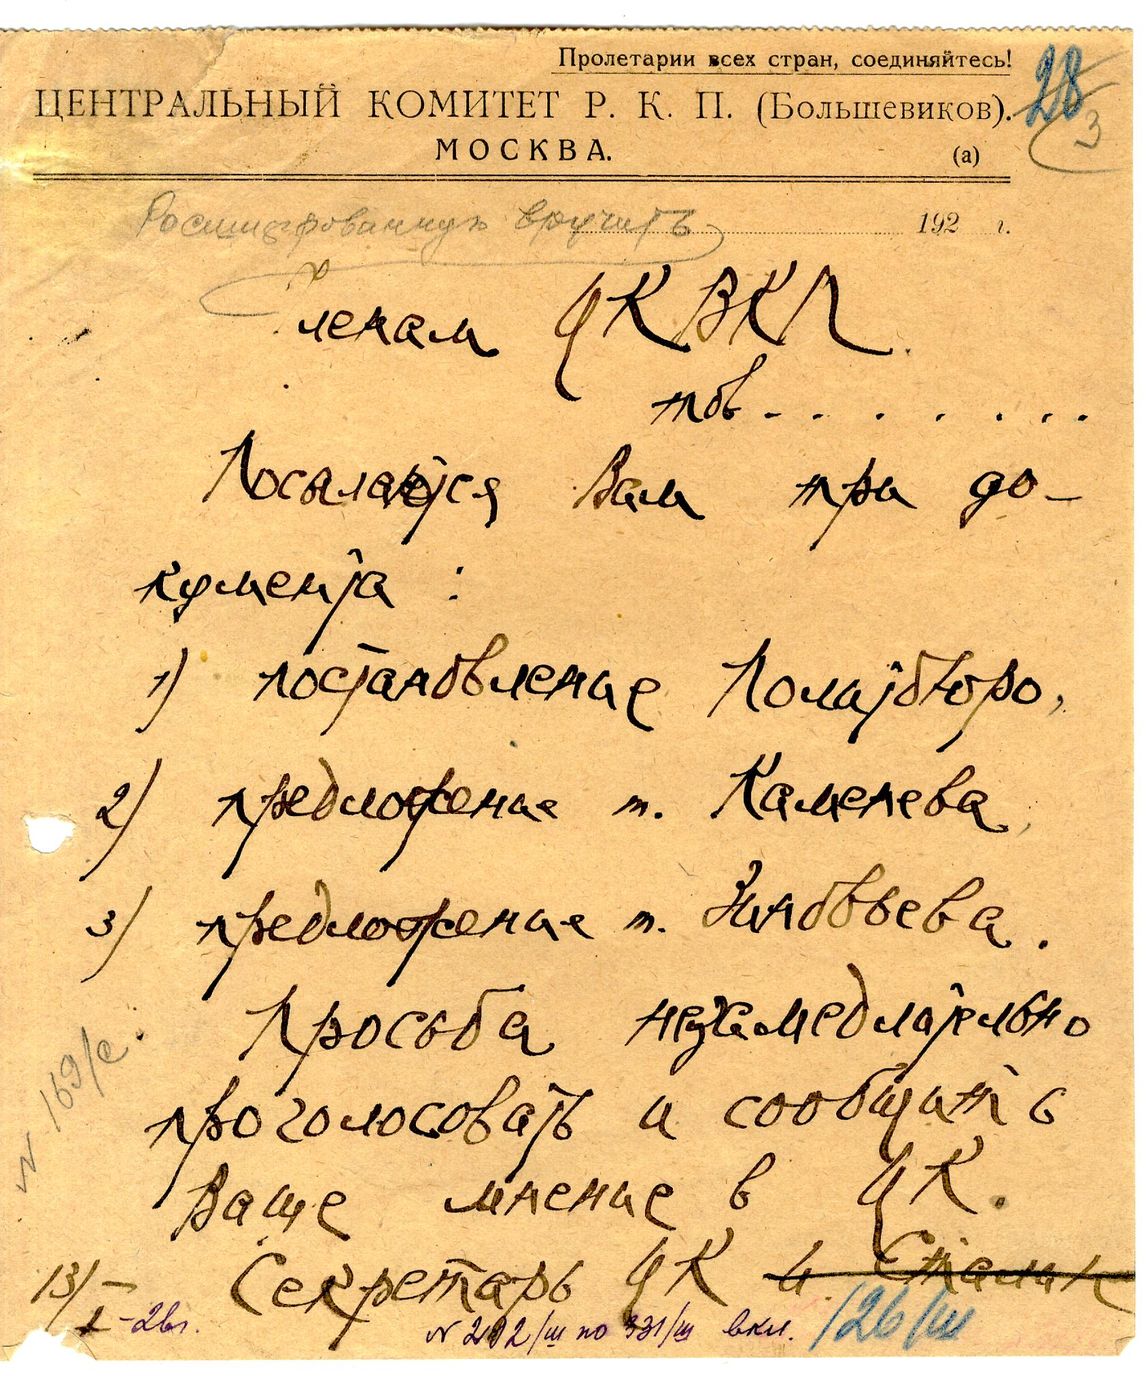 Пролетарии всех стран, соединяйтесь!
ЦЕНТРАЛЬНЫЙ КОМИТЕТ Р. К. П. (Большевиков).
28
3
МОСКВА. (а)
Расшифрованную вручить 192 г.
Членам ЦК ВКП.
тов - . . . . . . .
Посылаются Вам три до-
кумента :
1) постановление Политбюро,
2) предложение т. Каменева,
3) предложение т. Зиновьева.
Просьба незамедлительно
проголосовать и сообщить
Ваше мнение в ЦК.
Секретарь ЦК И. Сталин
13/I-26г.
N 292/ш по 331/ш вкл.
126/ш
N 169/с